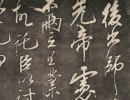 後出師
先帝慮
兩立王業
故託臣以討